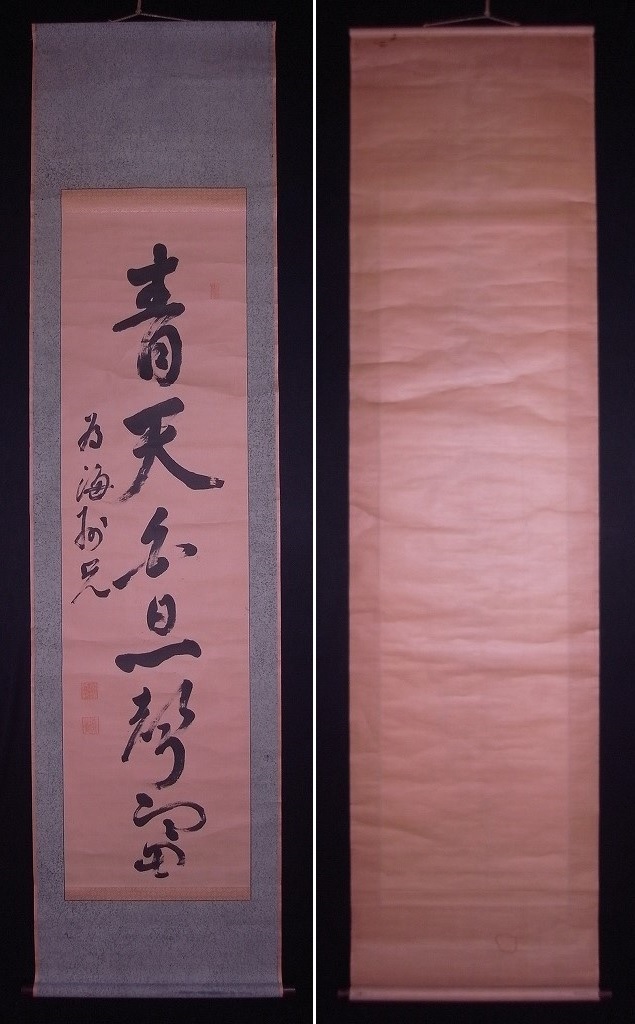 青天白日一聲雷
為海州兄